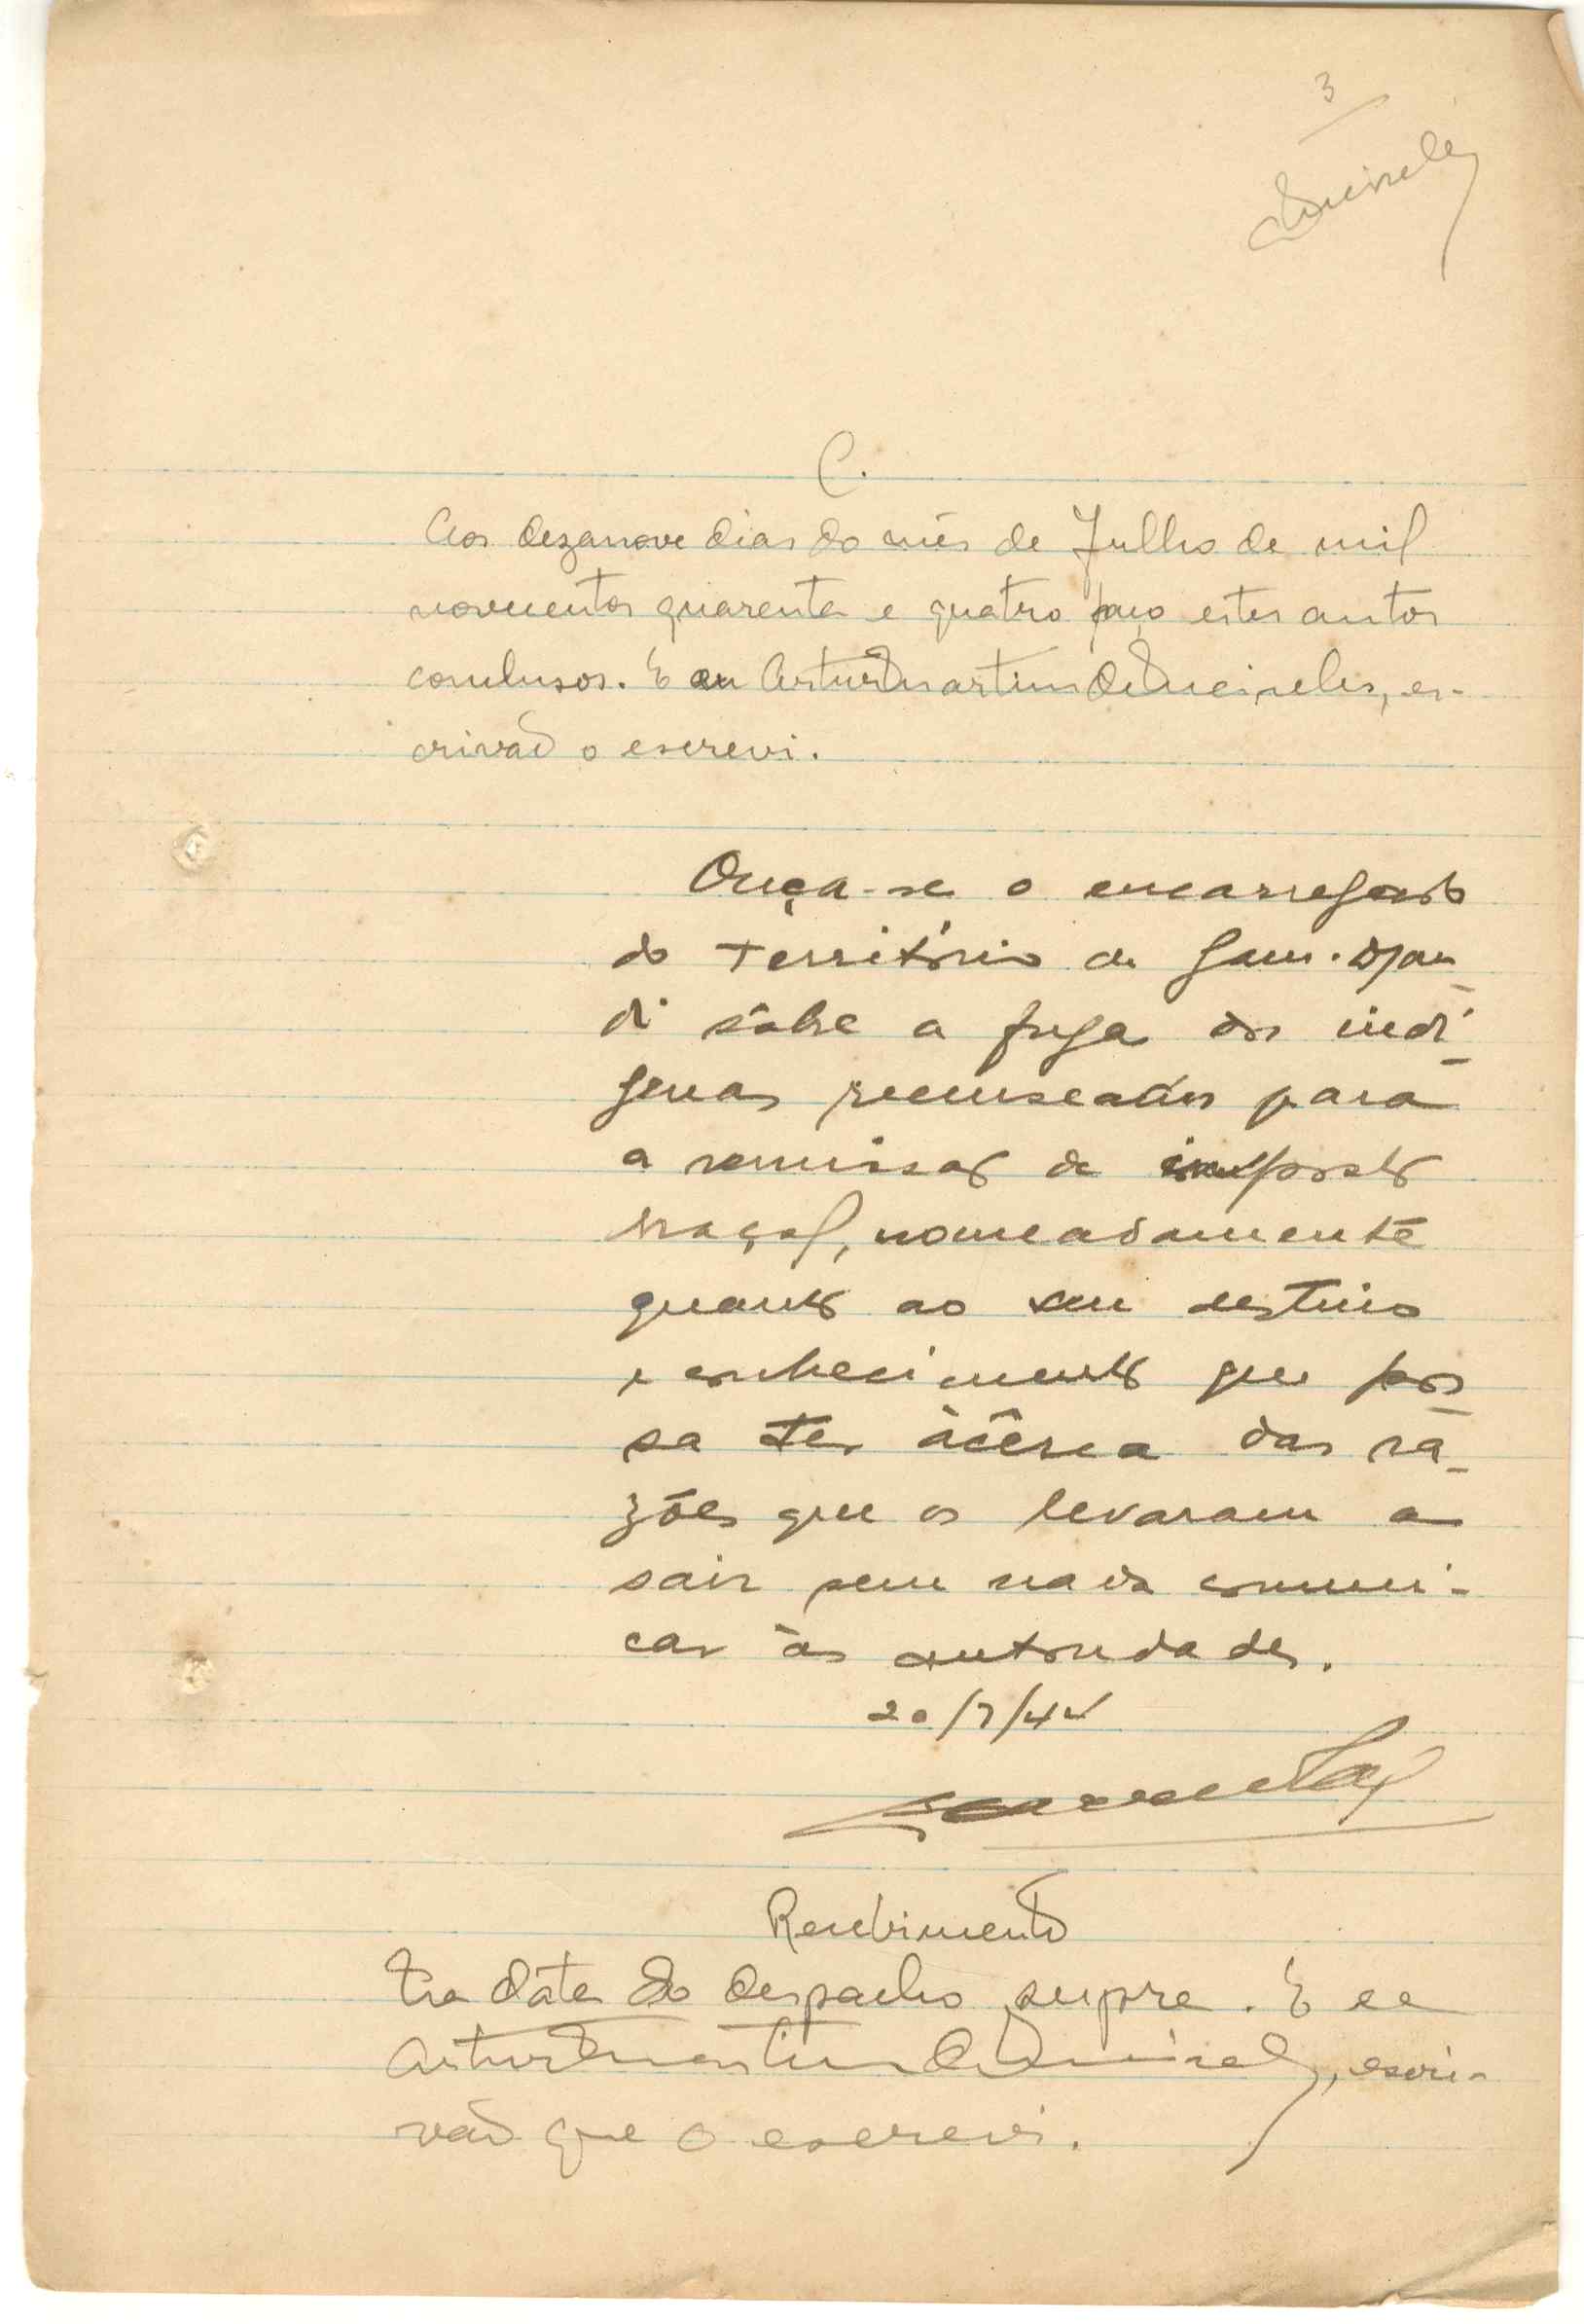 3
Meireles
C.
Aos dezanove dias do mês de Julho de mil
novecentos quarenta e quatro faço estes autos
conclusos. E eu Artur Martins de Meireles, es-
crivão o escrevi.
Ouça-se o encarregado
do Território de Gam-Djan-
di sôbre a fuga dos indí-
genas recenseados para
a remissão de imposto
braçal, nomeadamente
quanto ao seu destino
e conhecimento que pos-
sa ter àcêrca das ra-
zões que os levaram a
sair sem nada comuni-
car às autoridades.
20/7/44
Recebimento
Na data do despacho supra. E eu
Artur Martins de Meireles, escri-
vão que o escrevi.